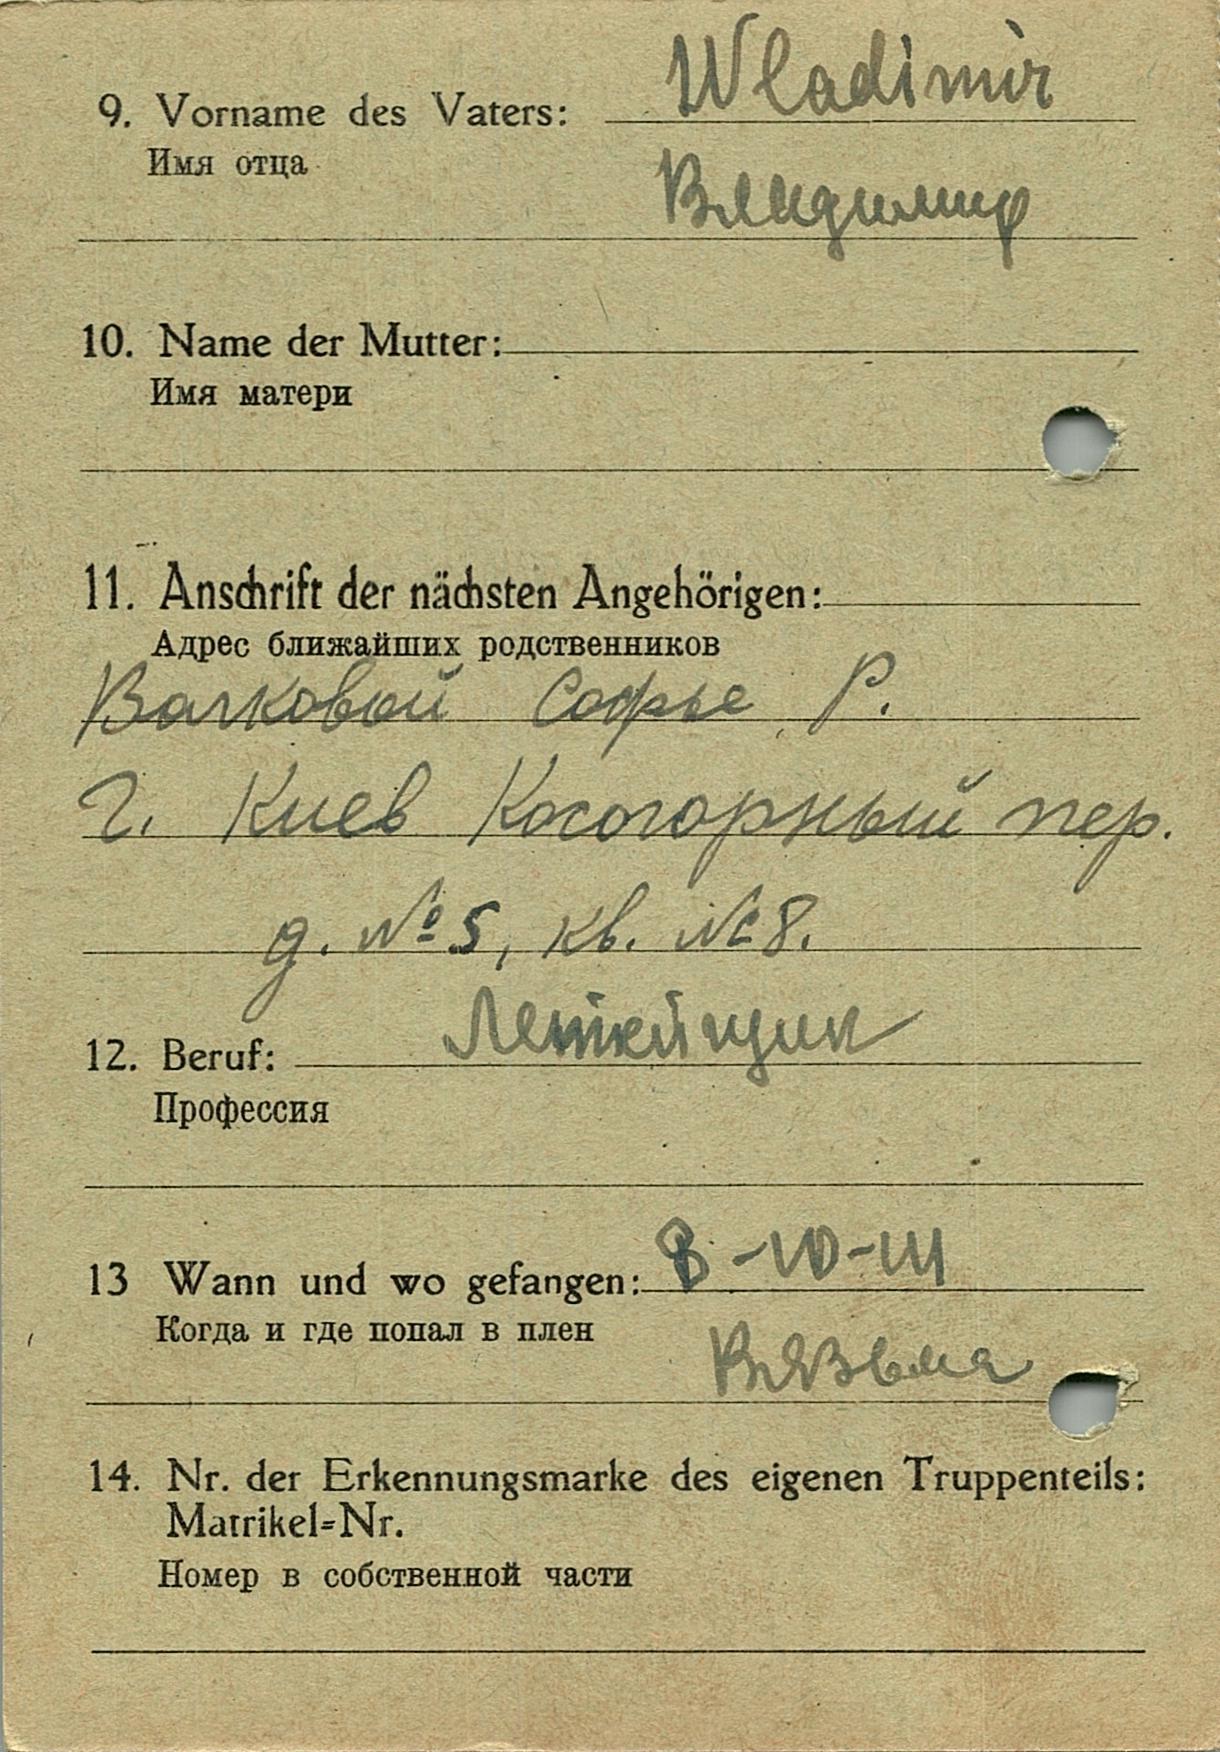 9. Vorname des Vaters: Wladimir
Имя отца
Владимир
10. Name der Mutter:
Имя матери
11. Anschrift der nächsten Angehörigen:
Адрес ближайших родственников
Волковой Софье Р.
г. Киев Косогорный пер.
д. №5, кв. №8.
12. Beruf:
Профессия
13 Wann und wo gefangen: 8-10-
Когда и где попал в плен
Вязьма
14. Nr. der Erkennungsmarke des eigenen Truppenteils:
Matrikel=Nr.
Номер в собственной части